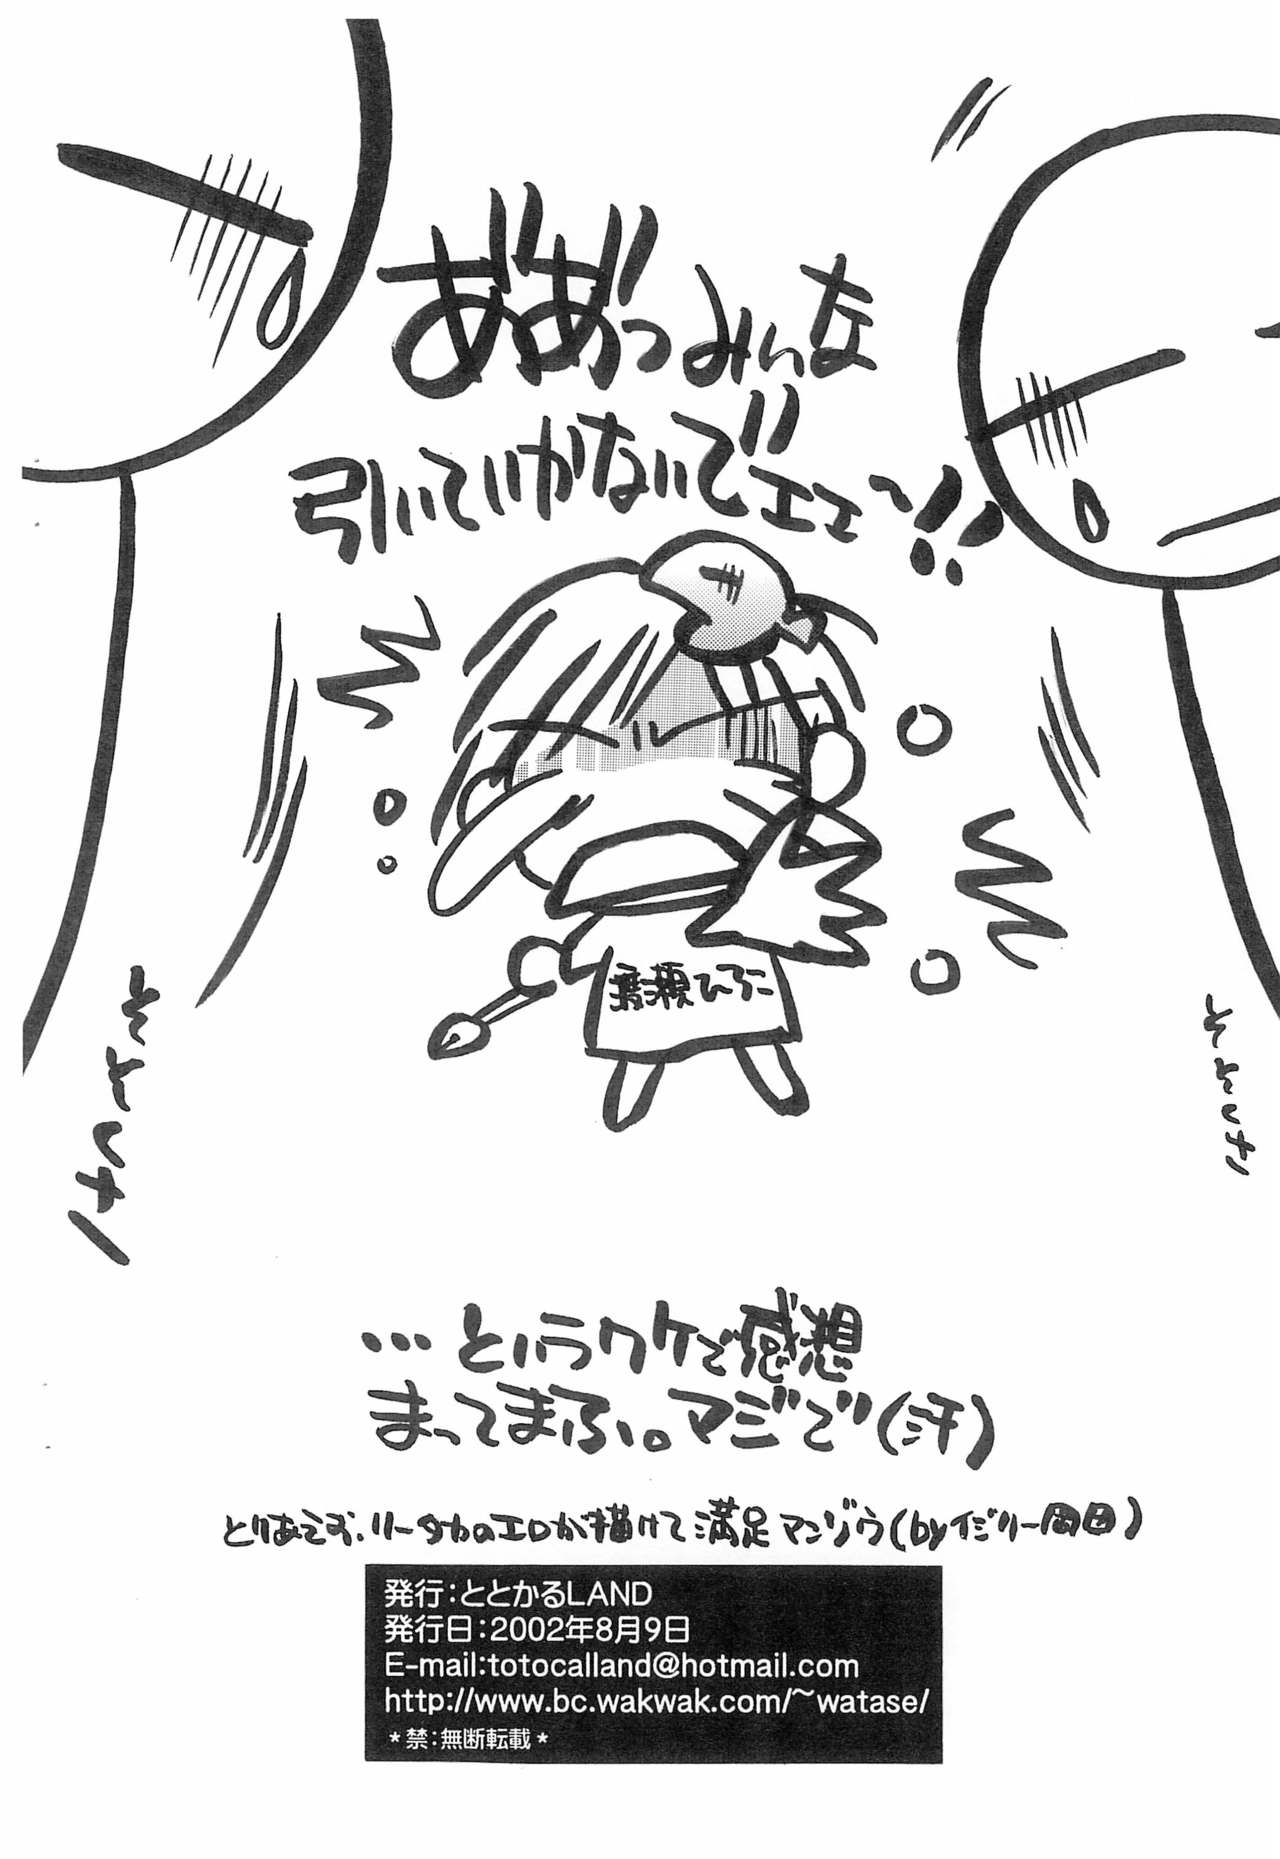 ああっみいな
引いていかないでエエ〜!!
渡瀬ひろこ
そそくさ
そそくさ
…というワケで感想
まってまふ。マジで(汗)
とりあえず、リータカのエロが描けて満足マンゾウ(byイジリー岡田)
発行：ととかるLAND
発行日：2002年8月9日
E-mail:totocalland@hotmail.com
http://www.bc.wakwak.com/~watase/
＊禁：無断転載＊